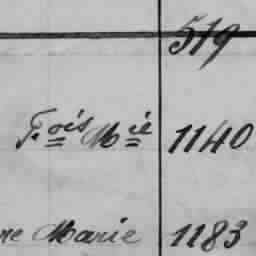 519
Fois Mie 1140
ne Marie 1183